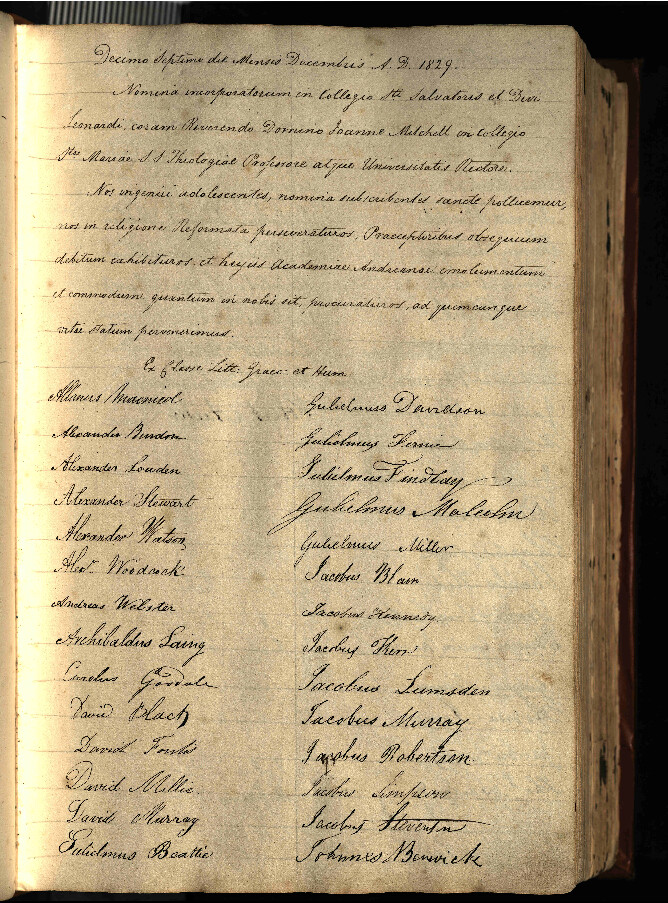 Decimo Septimo die Mensis Decembris A. D. 1829.
Nomina incorporatorum in Collegio Sti. Salvatoris et Divi
Leonardi, coram Reverendo Domino Joanne Mitchell in Collegio
Stae Mariae S. S Theologiae Professore atque Universitatis Rectore.
Nos ingenui adolescentes, nomina subscribentes sancte pollicemur,
nos in religione Reformata perseveraturos, Praeceptoribus obsequium
debitum exhibituros et hujus Academiae Andreanae emolumentum
et commodum quantum in nobis sit, procuraturos, ad quemcunque
vitae statum pervenerimus.
Ex Classe Litt. Graec. et Hum.
Allanus Macnicol
Alexander
Alexander Lowden
Alexander Stewart
Alexander Watson
Alexr. Woodcock
Andreas Webster
Archibaldus Laing
Goodale
David Black
David
David Millie
David Murray
Gulielmus Beattie
Gulielmus Davidson
Gulielmus Fernie
Gulielmus Findlay
Gulielmus Malcolm
Gulielmus Miller
Jacobus Blain
Jacobus Kennedy
Jacobus Kerr
Jacobus Lumsden
Jacobus Murray
Jacobus Robertson
Jacobus Simpson
Jacobus Steventon
Johannes Berwick